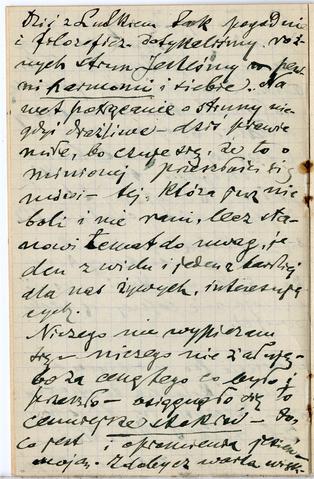 Dziś z Ludkiem tak pogodni
i filozoficz. Dotykaliśmy róż-
nych strun jesteśmy w peł-
ni harmonii i siebie. Na
wet potrącanie o struny nie-
gdyś drażliwe – dziś prawie
miłe, bo czuje się, że to o
minionej przeszłości się
mówi – tej, która już nie
boli i nie rani, lecz sta-
nowi temat do uwag, je
den z wielu i jeden z bardziej
dla nas żywych, interesują
cych.
Niczego nie wypieram
się – niczego nie żałuję –
bo za cenę tego co było i
przeszło – osiągnęło się to
cenniejsze
co jest i opromienia jesień
moją. Zdobycz warta wielk